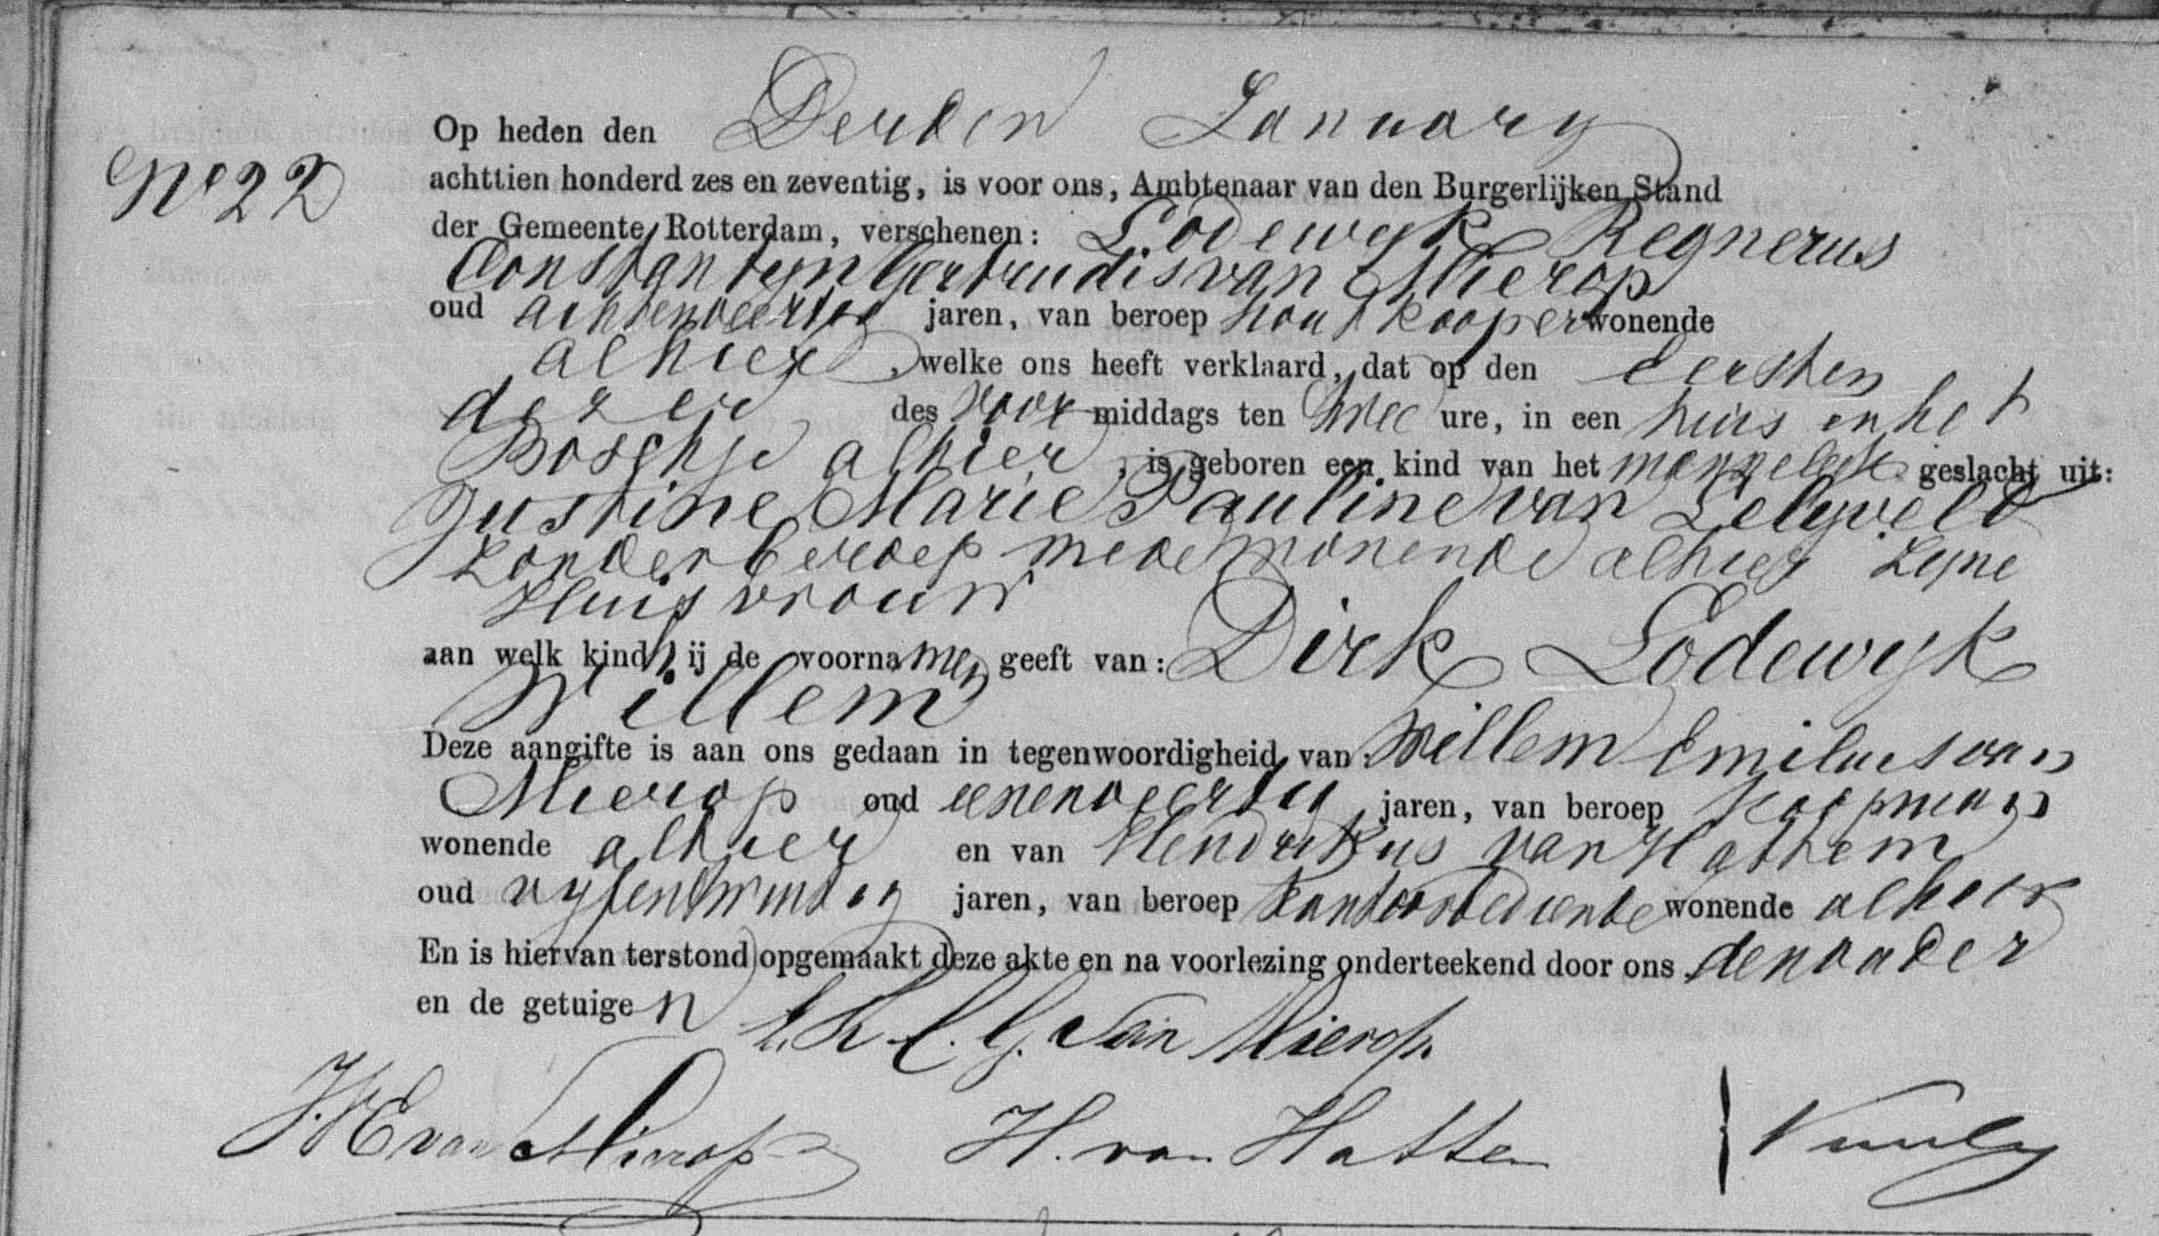 No 22
Op heden den Derden January
achttien honderd zes en zeventig, is voor ons, Ambtenaar van den Burgerlijken Stand
der Gemeente Rotterdam, verschenen: Lodewyk Regnerus
Constantyn Gertrudis van Mierop
oud achtenveertig jaren, van beroep houtkooper wonende
alhier, welke ons heeft verklaard, dat op den eersten
dezer des voormiddags ten twee ure, in een huis in het
Boschje alhier, is geboren een kind van het mannelyk geslacht uit:
Justine Marie Pauline van Lelyveld
zonder beroep mede wonende alhier zyne
Huisvrouw
aan welk kind hij de voornamen geeft van: Dirk Lodewyk
Willem
Deze aangifte is aan ons gedaan in tegenwoordigheid van Willem Emilius van
Mierop oud eenenveertig jaren, van beroep Koopman
wonende alhier en van Hendrikus van Hattem
oud vyfentwintig jaren, van beroep Kantoorbediende wonende alhier
En is hiervan terstond opgemaakt deze akte en na voorlezing onderteekend door ons den vader
en de getuigen
L. R. C. G. van Mierop.
W E van Mierop H. van Hattem